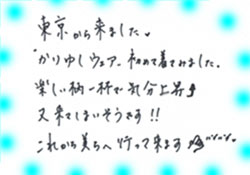 東京から来ました。
かりゆしウェアー初めて着てみました。
楽しい柄一杯で気分上昇↗
又来てしまいそうです!!
これから美らへ行って来ます